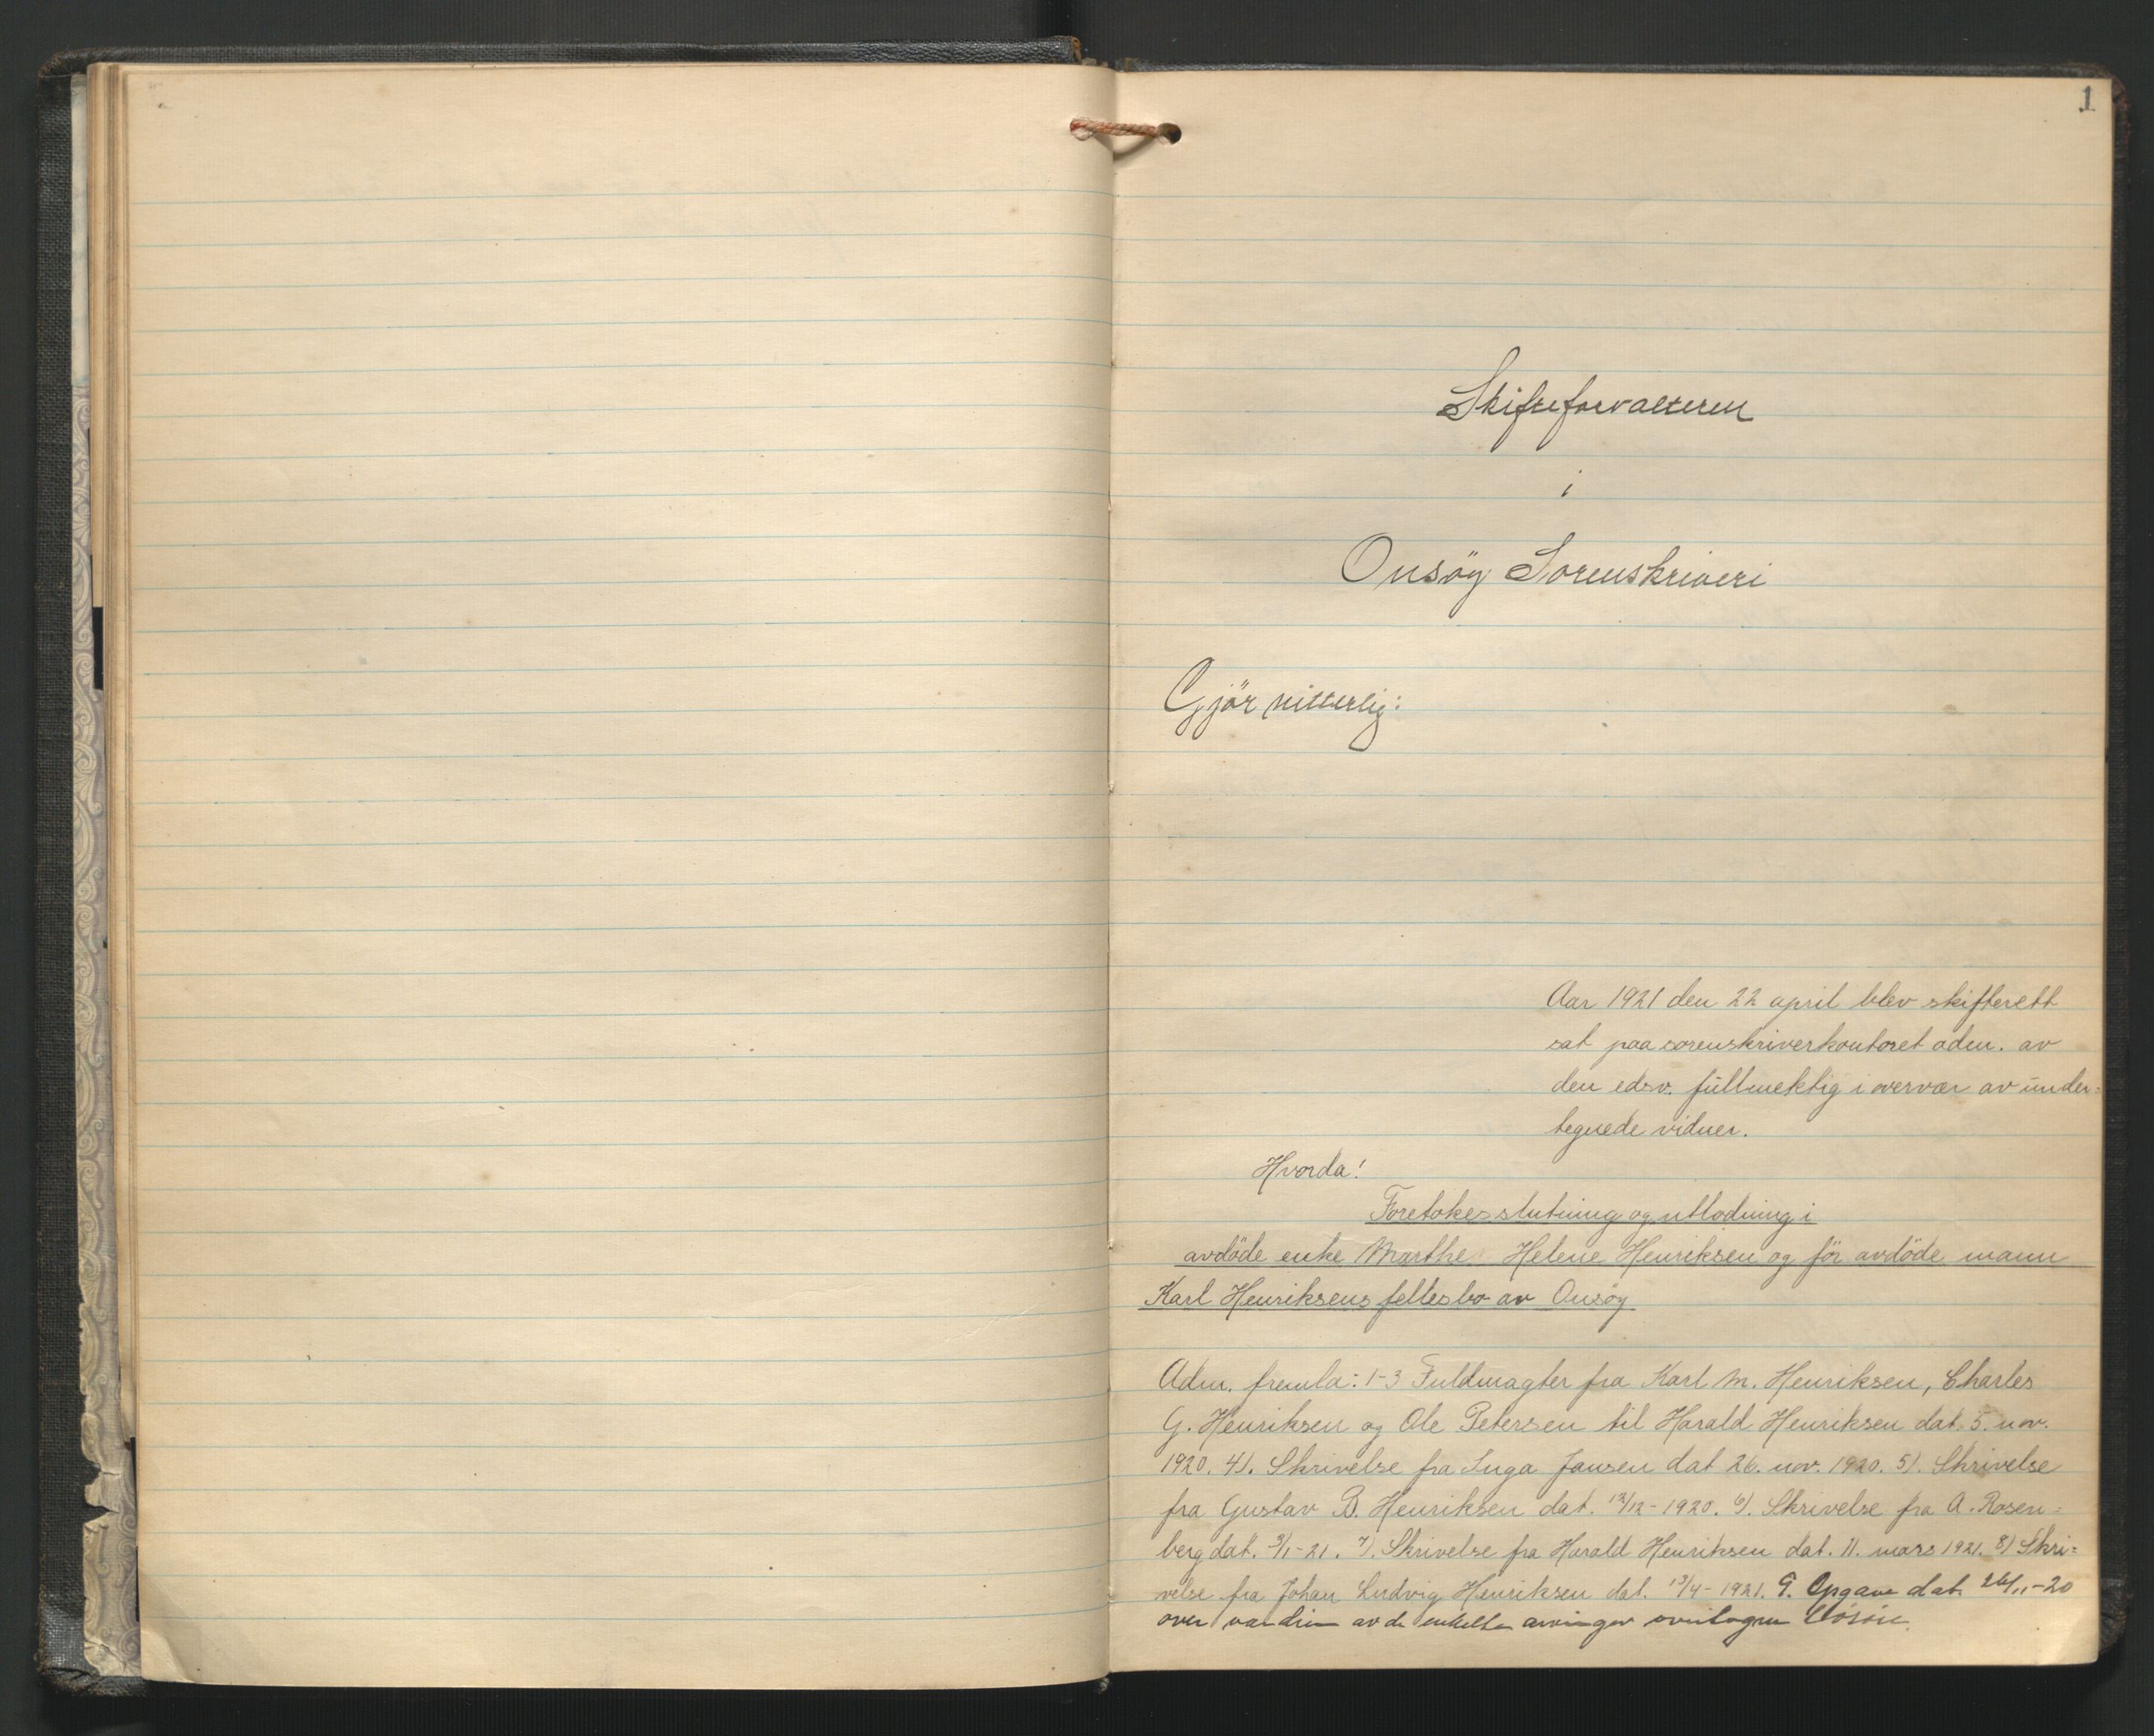 1
Skifteforvalteren
i
Onsöy Sorenskriveri
Gjör vitterlig:
Aar 1921 den 22 april blev skifterett
sat paa sorenskriverkontoret adm. av
den edsv. fullmektig i overvær av under=
tegnede vidner.
Hvorda!
Foretokes slutning og utlodning i
avdöde enke Marthe Helene Henriksen og för avdöde mann
Karl Henriksens fellesbo av Onsöy
Adm. fremla: 1-3 Fuldmagter fra Karl M. Henriksen, Charles
G. Henriksen og Ole Petersen til Harald Henriksen dat. 5. nov.
1920. 4). Skrivelse fra Inga Jansen dat 26. nov. 1920. 5). Skrivelse
fra Gustav B. Henriksen dat. 12/12-1920. 6). Skrivelse fra A. Rosen=
berg dat. 3/1-21. 7). Skrivelse fra Harald Henriksen dat. 11. mars 1921. 8) Skri=
velse fra Johan Ludvig Henriksen dat. 13/4-1921. 9. Opgave dat 26/11-20
over værdien av de enkelte arvinger overtagne lösöre.